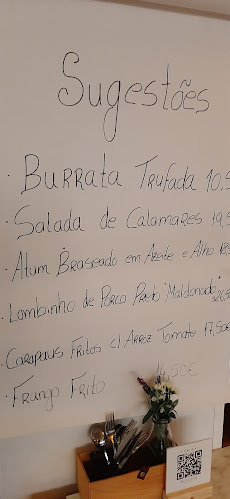 Sugestões
· Burrata Trufada 10,5
· Salada de Calamares 19,5
· Atum Braseado em Azeite e Alho
· Lombinho de Porco Preto "Maldonado"
· Carapaus Fritos c/ Arroz Tomate 17,50€
· Frango Frito 14,50€